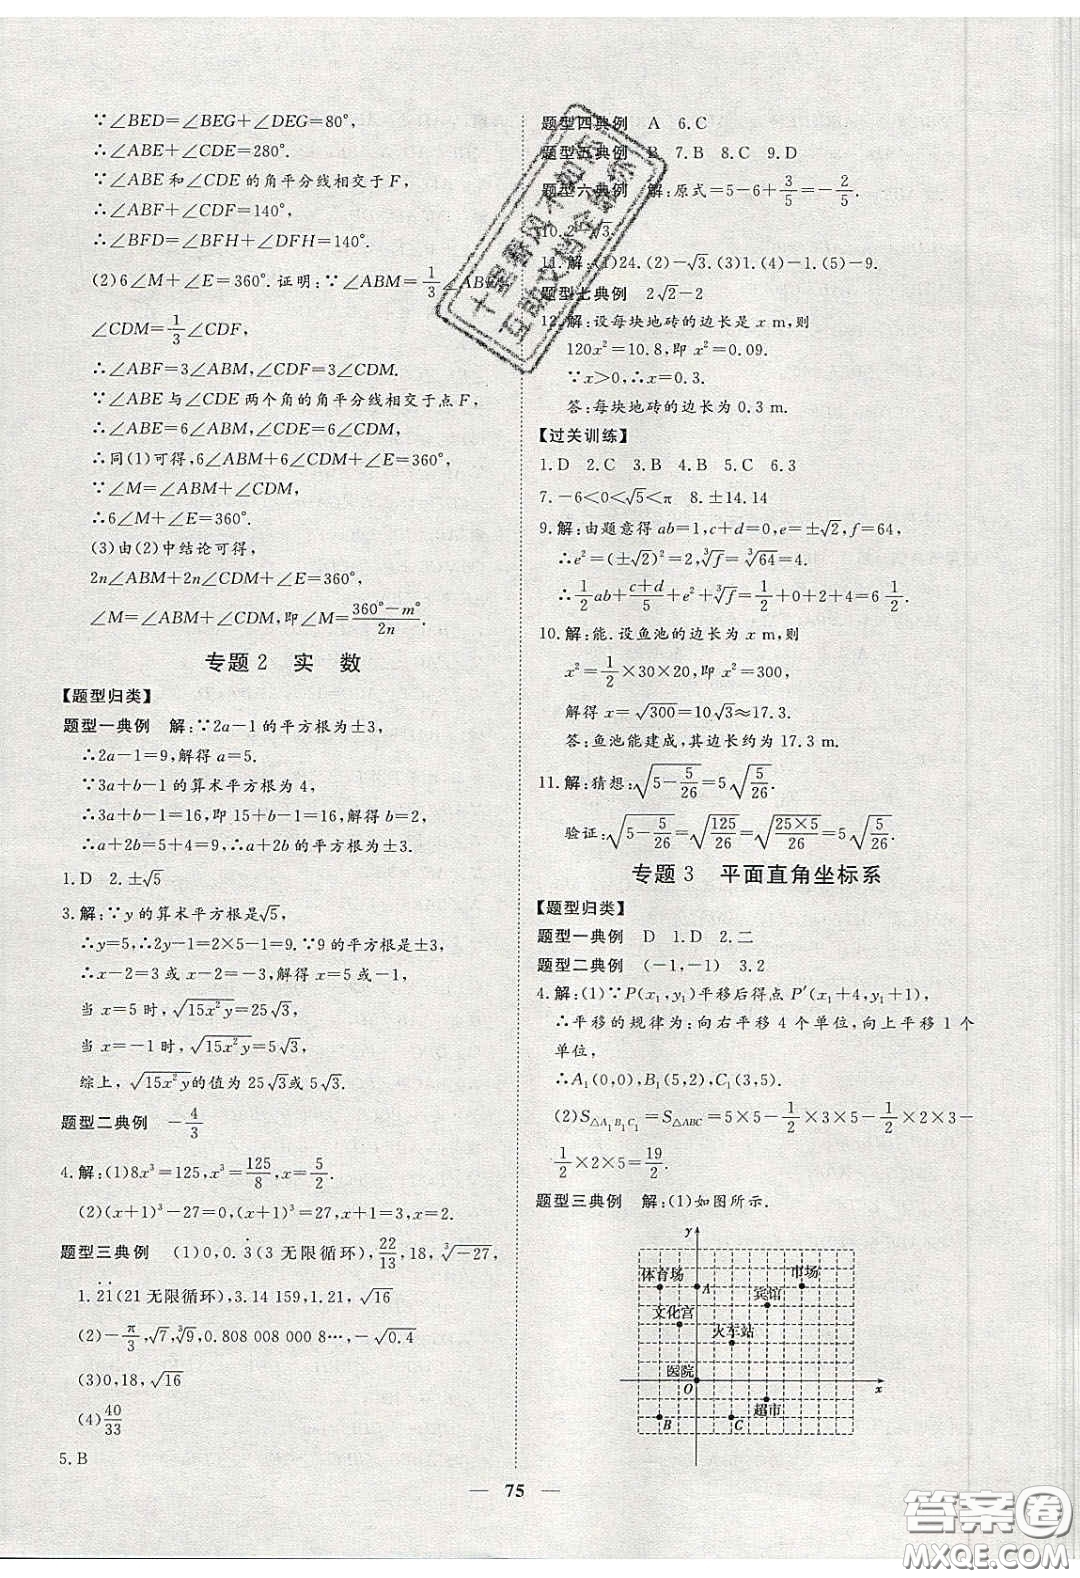 ∵∠BED=∠BEG+∠DEG=80°,
∴∠ABE+∠CDE=280°.
∵∠ABE和∠CDE的角平分线相交于F,
∴∠ABF+∠CDF=140°,
∴∠BFD=∠BFH+∠DFH=140°.
(2)6∠M+∠E=360°.证明:∵∠ABM=1/3∠ABF,
∠CDM=1/3∠CDF,
∴∠ABF=3∠ABM,∠CDF=3∠CDM.
∵∠ABE与∠CDE两个角的角平分线相交于点F,
∴∠ABE=6∠ABM,∠CDE=6∠CDM,
∴同(1)可得,6∠ABM+6∠CDM+∠E=360°.
∵∠M=∠ABM+∠CDM,
∴6∠M+∠E=360°.
(3)由(2)中结论可得,
2n∠ABM+2n∠CDM+∠E=360°,
∠M=∠ABM+∠CDM,即∠M=(360°-m°)/2n.
专题2 实 数
【题型归类】
题型一典例 解:∵2a-1的平方根为±3,
∴2a-1=9,解得a=5.
∵3a+b-1的算术平方根为4,
∴3a+b-1=16,即15+b-1=16,解得b=2,
∴a+2b=5+4=9,∴a+2b的算术平方根为3.
1.D 2.±√5
3.解:∵y的算术平方根是√5,
∴y=5,∴2y-1=2×5-1=9.∵9的平方根是±3,
∴x-2=3或x-2=-3,解得x=5或x=-1.
当x=5时,√(15x²y)=25√3,
当x=-1时,√(15x²y)=5√3,
综上,√(15x²y)的值为25√3或5√3.
题型二典例 -4/3
4.解:(1)8x³=125,x³=125/8,x=5/2.
(2)(x+1)³-27=0,(x+1)³=27,x+1=3,x=2.
题型三典例 (1)0,0.3̇(3无限循环),22/13,18,∛-27,
1.2̇1̇(21无限循环),3.14 159,1.21,√16
(2)-π/3,√7,∛9,0.808 008 000 8…,-√0.4
(3)0,18,√16
(4)40/33
5.B
题型四典例 A 6.C
题型五典例 B 7.B 8.C 9.D
题型六典例 解:原式=5-6+3/5=-2/5
11.解:(1)24.(2)-√3.(3)1.(4)-1.(5)-9.
题型七典例 2√2-2
12.解:设每块地砖的边长是x m,则
120x²=10.8,即x²=0.09.
∵x>0,∴x=0.3.
答:每块地砖的边长为0.3 m.
【过关训练】
1.D 2.C 3.B 4.B 5.C 6.3
7.-6<0<√5<π 8.±14.14
9.解:由题意得ab=1,c+d=0,e=±√2,f=64,
∴e²=(±√2)²=2,∛f=∛64=4.
∴1/2ab+(c+d)/5+e²+∛f=1/2+0+2+4=6 1/2.
10.解:能.设鱼池的边长为x m,则
x²=1/2×30×20,即x²=300,
解得x=√300=10√3≈17.3.
答:鱼池能建成,其边长约为17.3 m.
11.解:猜想:√(5-5/26)=5√(5/26).
验证:√(5-5/26)=√(125/26)=√((25×5)/26)=5√(5/26).
专题3 平面直角坐标系
【题型归类】
题型一典例 D 1.D 2.二
题型二典例 (-1,-1) 3.2
4.解:(1)∵P(x₁,y₁)平移后得点P′(x₁+4,y₁+1),
∴平移的规律为:向右平移4个单位,向上平移1个
单位,
∴A₁(0,0),B₁(5,2),C₁(3,5).
(2)S△A₁B₁C₁=S△ABC=5×5-1/2×3×5-1/2×2×3-
1/2×2×5=19/2.
题型三典例 解:(1)如图所示.
y
体育场 A 市场
宾馆
文化宫
火车站
医院
O x
超市
B C
75
答案圈
MXQE.COM